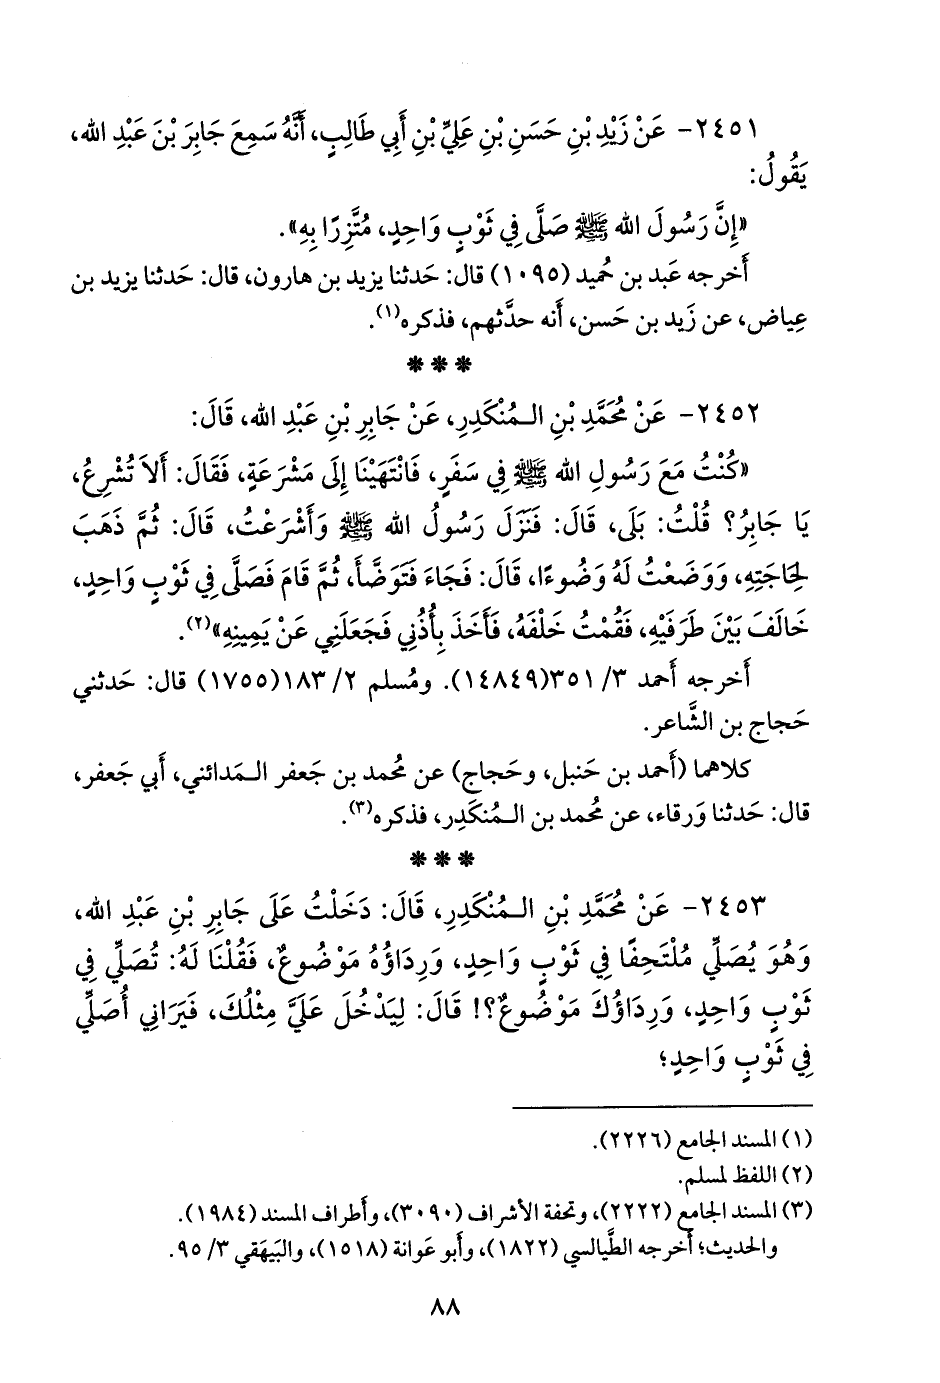 ٢٤٥١- عَنْ زَيْدِ بْنِ حَسَنِ بْنِ عَلِيِّ بْنِ أَبِي طَالِبٍ، أَنَّهُ سَمِعَ جَابِرَ بْنَ عَبْدِ الله،
يَقُولُ:
«إِنَّ رَسُولَ الله ﷺ صَلَّى فِي ثَوْبٍ وَاحِدٍ، مُتَّزِرًا بِهِ».
أَخرجه عَبد بن حُميد (١٠٩٥) قال: حَدثنا يزيد بن هارون، قال: حَدثنا يزيد بن
عِياض، عن زَيد بن حَسن، أَنه حدَّثهم، فذكره(١).
* * *
٢٤٥٢- عَنْ مُحَمَّدِ بْنِ الـمُنْكَدِرِ، عَنْ جَابِرِ بْنِ عَبْدِ الله، قَالَ:
«كُنْتُ مَعَ رَسُولِ الله ﷺ فِي سَفَرٍ، فَانْتَهَيْنَا إِلَى مَشْرَعَةٍ، فَقَالَ: أَلاَ تُشْرِعُ،
يَا جَابِرُ؟ قُلْتُ: بَلَى، قَالَ: فَنَزَلَ رَسُولُ الله ﷺ وَأَشْرَعْتُ، قَالَ: ثُمَّ ذَهَبَ
لِحَاجَتِهِ، وَوَضَعْتُ لَهُ وَضُوءًا، قَالَ: فَجَاءَ فَتَوَضَّأَ، ثُمَّ قَامَ فَصَلَّى فِي ثَوْبٍ وَاحِدٍ،
خَالَفَ بَيْنَ طَرَفَيْهِ، فَقُمْتُ خَلْفَهُ، فَأَخَذَ بِأُذُنِي فَجَعَلَنِي عَنْ يَمِينِهِ»(٢).
أَخرجه أَحمد ٣/ ٣٥١(١٤٨٤٩). ومُسلم ٢/ ١٨٣(١٧٥٥) قال: حَدثني
حَجاج بن الشَّاعر.
كلاهما (أَحمد بن حَنبل، وحَجاج) عن مُحمد بن جَعفر الـمَدائني، أَبي جَعفر،
قال: حَدثنا وَرقاء، عن مُحمد بن الـمُنكَدِر، فذكره(٣).
* * *
٢٤٥٣- عَنْ مُحَمَّدِ بْنِ الـمُنْكَدِرِ، قَالَ: دَخَلْتُ عَلَى جَابِرِ بْنِ عَبْدِ الله،
وَهُوَ يُصَلِّي مُلْتَحِفًا فِي ثَوْبٍ وَاحِدٍ، وَرِدَاؤُهُ مَوْضُوعٌ، فَقُلْنَا لَهُ: تُصَلِّي فِي
ثَوْبٍ وَاحِدٍ، وَرِدَاؤُكَ مَوْضُوعٌ؟! قَالَ: لِيَدْخُلَ عَلَيَّ مِثْلُكَ، فَيَرَانِي أُصَلِّي
فِي ثَوْبٍ وَاحِدٍ؛
(١) المسند الجامع (٢٢٢٦).
(٢) اللفظ لمسلم.
(٣) المسند الجامع (٢٢٢٢)، وتحفة الأشراف (٣٠٩٠)، وأَطراف المسند (١٩٨٤).
والحديث؛ أَخرجه الطَّيالسي (١٨٢٢)، وأَبو عَوانة (١٥١٨)، والبَيهَقي ٣/ ٩٥.
٨٨